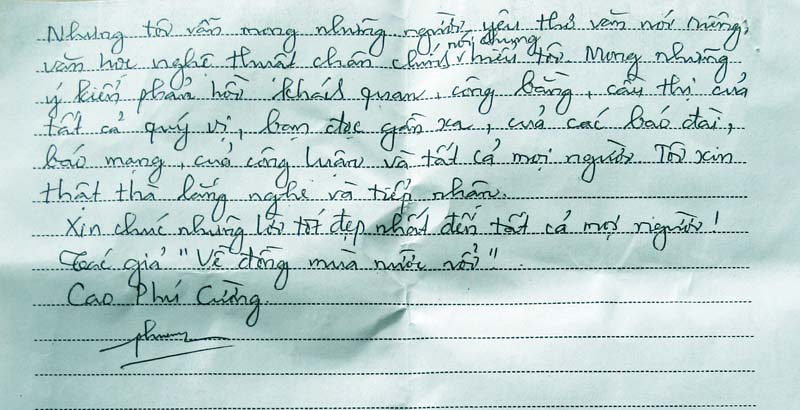 Nhưng tôi vẫn mong những người yêu thơ văn nói riêng,
văn học nghệ thuật chân chính nói chung hiểu tôi. Mong những
ý kiến phản hồi khách quan, công bằng, cầu thị của
tất cả quý vị, bạn đọc gần xa, của các báo đài,
báo mạng, của công luận và tất cả mọi người. Tôi xin
thật thà lắng nghe và tiếp nhận.
Xin chúc những lời tốt đẹp nhất đến tất cả mọi người!
Tác giả "Về đồng mùa nước nổi".
Cao Phú Cường.